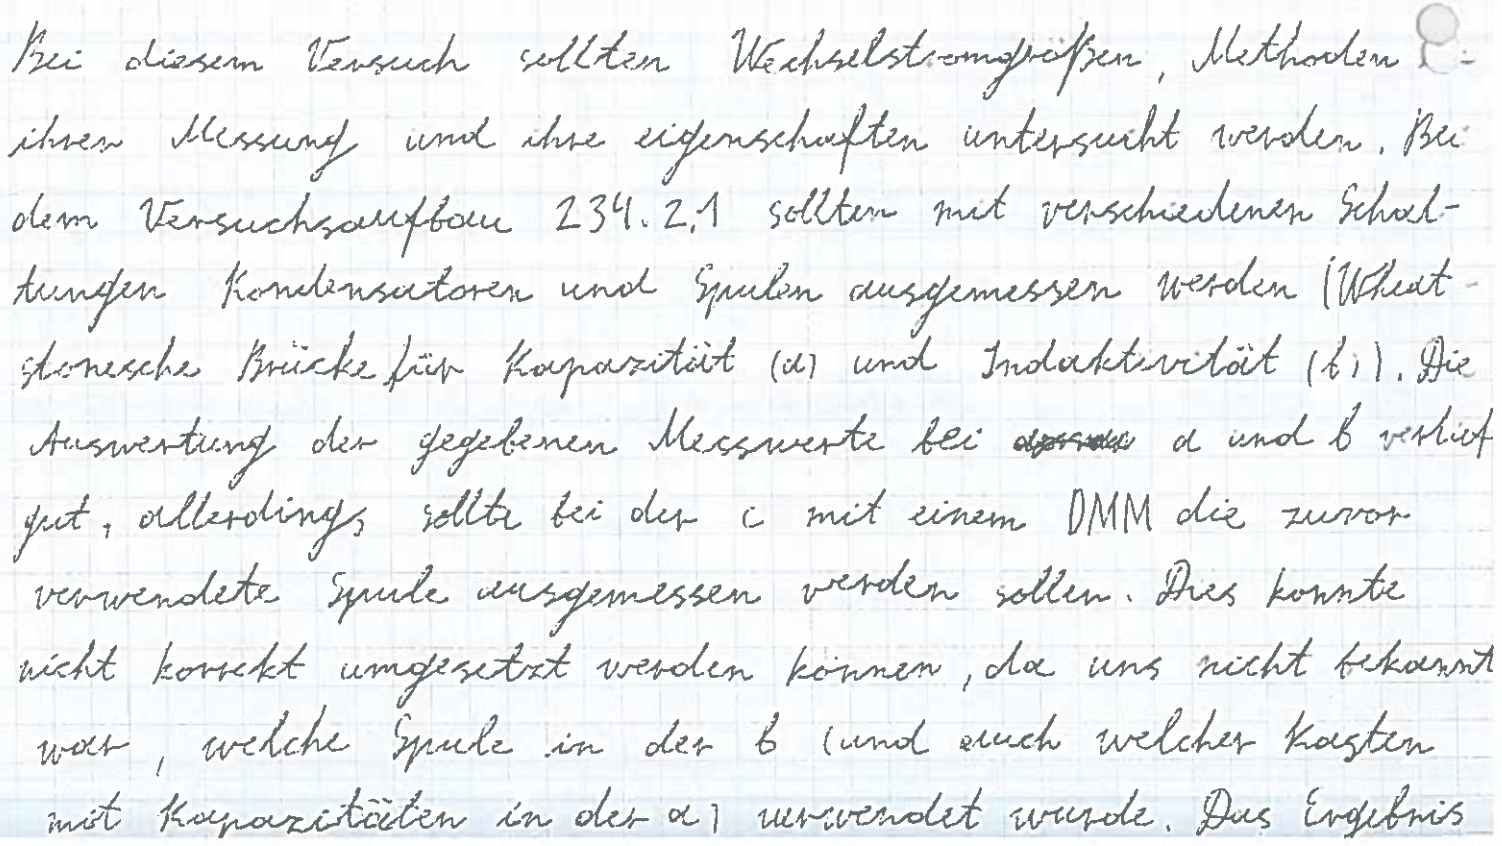 Bei diesem Versuch sollten Wechselstromgrößen, Methoden
ihren Messung und ihre eigenschaften untersucht werden. Bei
dem Versuchsaufbau 234.2.1 sollten mit verschiedenen Schal-
tungen Kondensatoren und Spulen ausgemessen werden (Wheat-
stonesche Brücke für Kapazität (a) und Induktivität (b)). Die
Auswertung der gegebenen Messwerte bei a und b verlief
gut, allerdings sollte bei der c mit einem DMM die zuvor
verwendete Spule ausgemessen werden sollen. Dies konnte
nicht korrekt umgesetzt werden können, da uns nicht bekannt
war, welche Spule in der b (und auch welcher Kasten
mit Kapazitäten in der a) verwendet wurde. Das Ergebnis